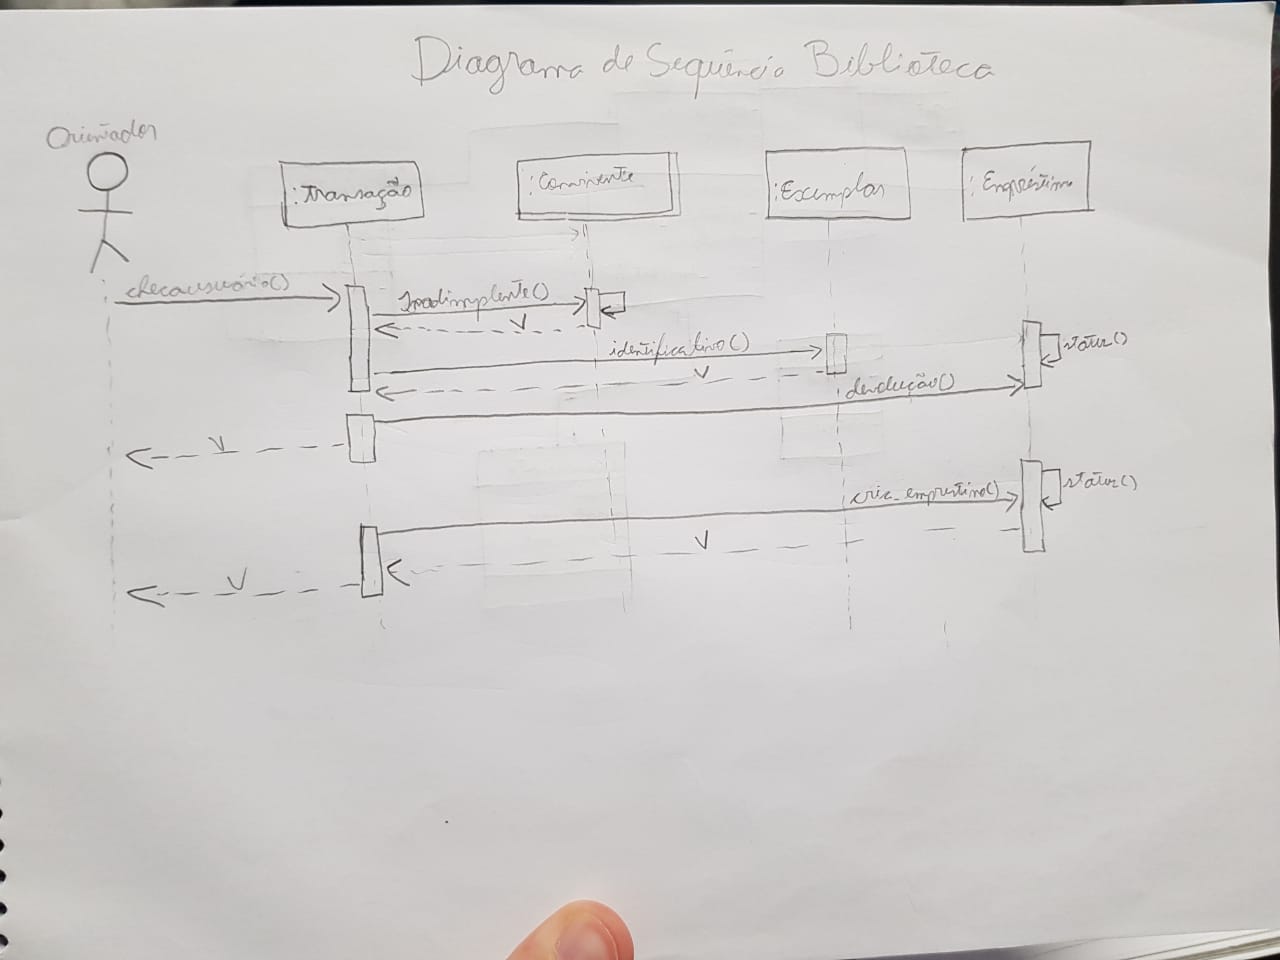 Diagrama de Sequência Biblioteca
Orientador
:Transação
:Convivente
:Exemplar
:Empréstimo
checausuário()
Inadimplente()
V
identificativo()
status()
V
devolução()
V
cria_emprestimo()
status()
V
V